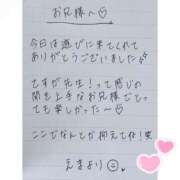 お兄様へ♡
今日は遊びに来てくれて
ありがとうございました
ですが先生!って感じの
聞き上手なお兄様でとっ
ても楽しかった〜♡
ここでなんとか抑えてね!笑
えまより☺